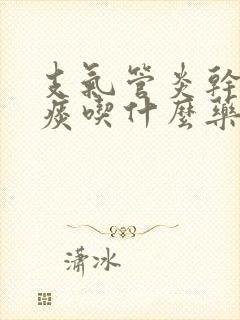 支氣管炎幹
痰喫什麼藥
瀟冰